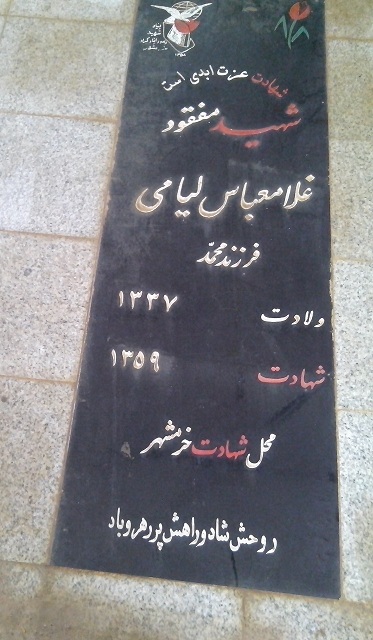 بنیاد
شهید
شهادت عزت ابدی است
شهید مفقود
غلامعباس لیامی
فرزند محمد
ولادت ۱۳۳۷
شهادت ۱۳۵۹
محل شهادت خرمشهر
روحش شاد و راهش پر رهرو باد